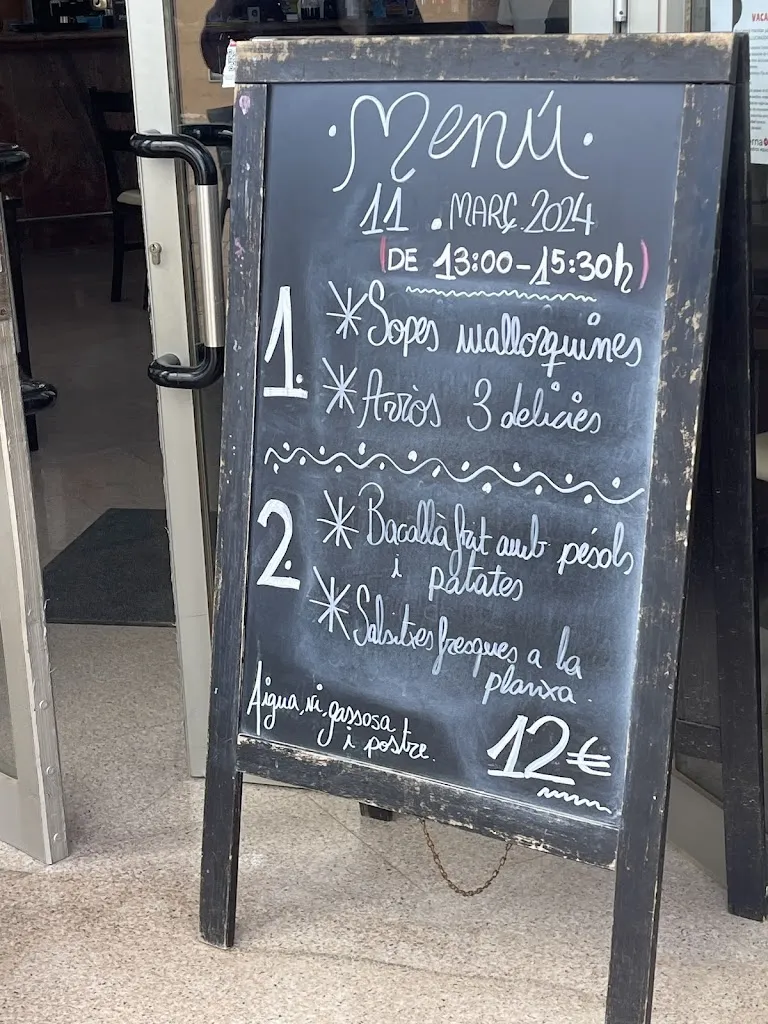 Menú
11 . MARÇ 2024
(DE 13:00-15:30h)
1. * Sopes mallorquines
* Arròs 3 delicies
2. * Bacallà frit amb pésols
i patates
* Salsitxes fresques a la
planxa.
Aigua, vi, gassosa
i postre.
12€
VACA